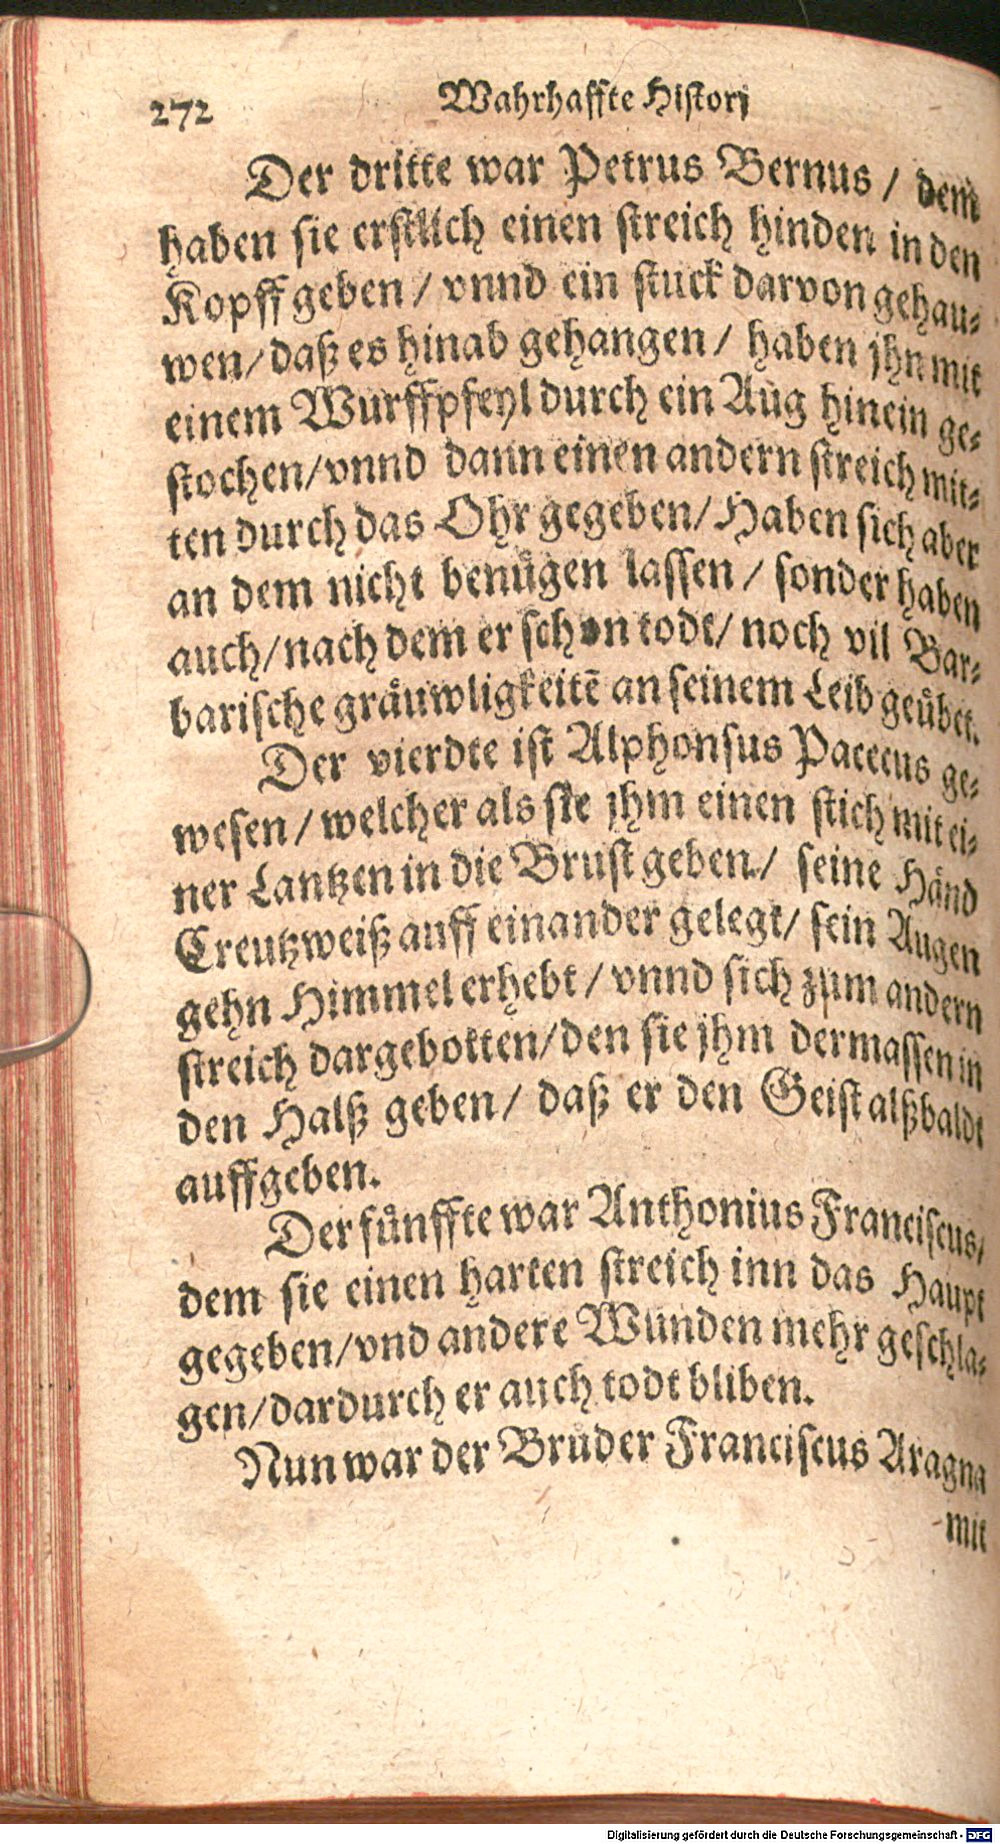 272 Wahrhaffte Histori
Der dritte war Petrus Bernus / dem
haben sie erstlich einen streich hinden in den
Kopff geben / vnnd ein stuck darvon gehau⸗
wen / daß es hinab gehangen / haben jhn mit
einem Wurffpfeyl durch ein Aug hinein ge⸗
stochen / vnnd dann einen andern streich mit⸗
ten durch das Ohr gegeben / Haben sich aber
an dem nicht benuͤgen lassen / sonder haben
auch / nach dem er schon todt / noch vil Bar⸗
barische graͤuwligkeitē an seinem Leib geuͤbet.
Der vierdte ist Alphonsus Pacecus ge⸗
wesen / welcher als sie jhm einen stich mit ei⸗
ner Lantzen in die Brust geben / seine Haͤnd
Creutzweiß auff einander gelegt / sein Augen
gehn Himmel erhebt / vnnd sich zum andern
streich dargebotten / den sie jhm dermassen in
den Halß geben / daß er den Geist alßbaldt
auffgeben.
Der fuͤnffte war Anthonius Franciscus /
dem sie einen harten streich inn das Haupt
gegeben / vnd andere Wunden mehr geschla⸗
gen / dardurch er auch todt bliben.
Nun war der Bruͦder Franciscus Aragna
mit
Digitalisierung gefördert durch die Deutsche Forschungsgemeinschaft - DFG